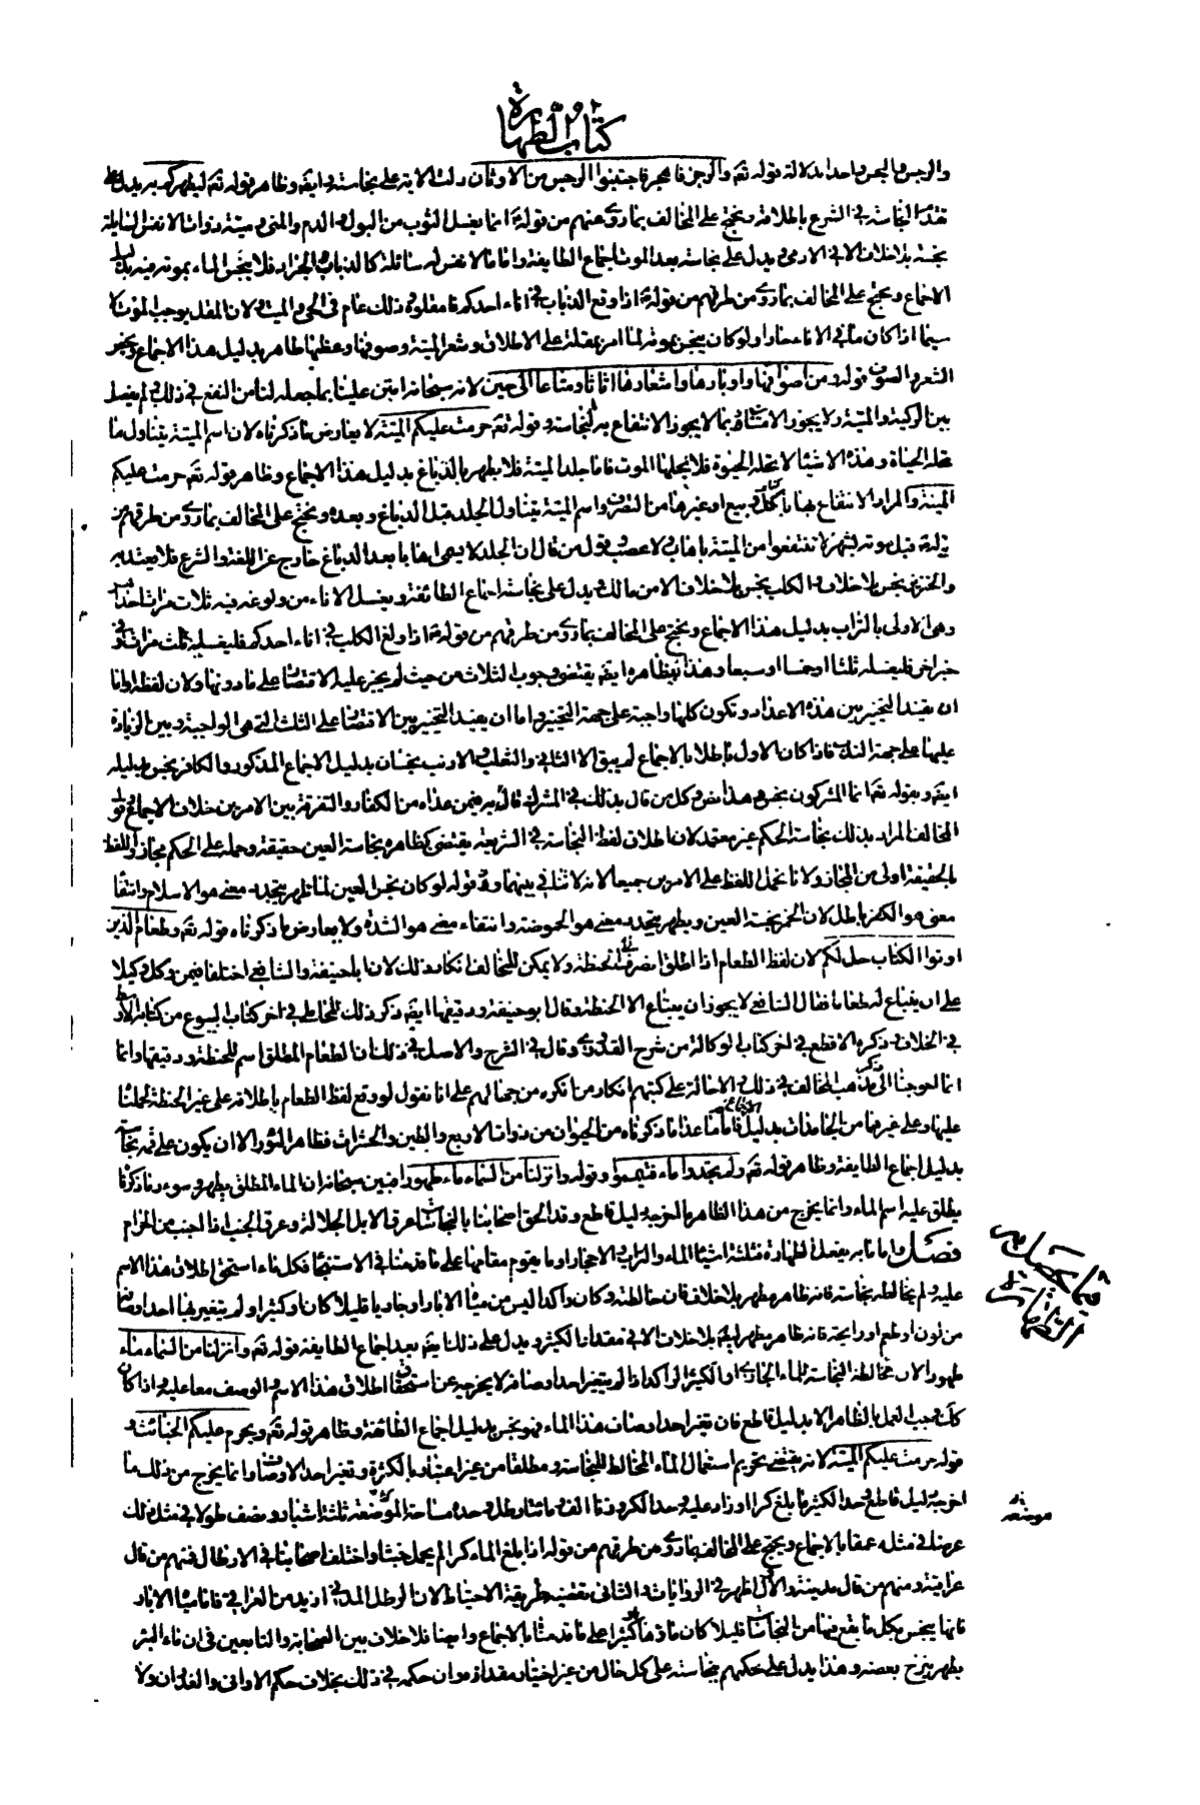 كتاب الطهارة
والرجس والنجس واحد بدلالة قوله تعـ والرجز فاهجر فاجتنبوا الرجس من الاوثان دلت الاية على نجاسته وايضـ وظاهر قوله تعـ ليطهركم به يدل على
تقدم النجاسة في الشرع باطلاقه ويحتج على المخالف بما رووه عنهم من قوله ع انما يغسل الثوب من البول والدم والمنى وميتة ذوات الانفس السايلة
نجسة بلا خلاف الا في الادمي ويدل على نجاسته بعد الموت اجماع الطايفة واما ما لا نفس له سائلة كالذباب والجراد فلا ينجس الماء بموته فيه بدليل
الاجماع ويحتج على المخالف بما رووه من طرقهم من قوله ع اذا وقع الذباب في اناء احدكم فامقلوه وذلك عام في الحي والميت لان المقل يوجب الموت لا
سيما اذا كان ما في الاناء حارا ولو كان ينجس بموته لما امر بمقله على الاطلاق وشعر الميتة وصوفها وعظمها طاهر بدليل هذا الاجماع ويخص
الشعر والصوف قوله ومن اصوافها واوبارها واشعارها اثاثا ومتاعا الى حين لانه سبحانه امتن علينا بما جعله لنا من النفع في ذلك ولم يفصل
بين الذكية والميتة ولا يجوز الامتنان بما لا يجوز الانتفاع به لنجاسته وقوله تعـ حرمت عليكم الميتة لا يعارض ما ذكرناه لان اسم الميتة يتناول ما
تحله الحياة وهذه الاشياء لا تحله الحيوة فلا يحلها الموت فاما جلد الميتة فلا يطهر بالدباغ بدليل هذا الاجماع وظاهر قوله تعـ حرمت عليكم
الميتة والمراد الانتفاع بها باكل وبيع او غيرهما من التصرف واسم الميتة يتناول الجلد قبل الدباغ وبعده ويحتج على المخالف بما رووه من طرقهم من
قوله ع قبل موته بشهر لا تنتفعوا من الميتة باهاب ولا عصب وقول من قال ان الجلد لا يسمى اهابا بعد الدباغ خارج عن اللغة والشرع فلا يعتد به
والخنزير نجس بلا خلاف والكلب نجس بلا خلاف الا من مالك ويدل على نجاسته اجماع الطائفة ويغسل الاناء من ولوغه فيه ثلاث مرات احداهن
وهى الاولى بالتراب بدليل هذا الاجماع ويحتج على المخالف بما رووه من طرقهم من قوله ع اذا ولغ الكلب في اناء احدكم فليغسله ثلث مرات وفي
خبر اخر فليغسله ثلثا او خمسا او سبعا وهذا بظاهره ايضـ يقتضى وجوب الثلاث من حيث لم يجز عليه الاقتصار على ما دونها ولان لفظة او اما
ان يفيد التخيير بين هذه الاعداد وتكون كلها واجبة على جهة التخيير واما ان يفيد التخيير بين الاقتصار على الثلث التي هى الواجبة وبين الزيادة
عليها على جهة الندب فاذا كان الاول باطلا بالاجماع لم يبق الا الثاني والثعلب والارنب نجسان بدليل الاجماع المذكور والكافر نجس بدليله
ايضـ وبقوله تعـ انما المشركون نجس وهذا نص وكل من قال بذلك في المشرك قال به فيمن عداه من الكفار والتفرقة بين الامرين خلاف الاجماع وقول
المخالف المراد بذلك نجاسة الحكم غير معتمد لان اطلاق لفظ النجاسة في الشريعة يقتضى بظاهره نجاسة العين حقيقة وحمله على الحكم مجاز واللفظ
بالحقيقة اولى من المجاز ولانا نحمل اللفظ على الامرين جميعا لانه لا تنافي بينهما وقوله لو كان نجس العين لما طهر بتجدد معنى هو الاسلام وانتفاء
معنى هو الكفر باطل لان الخمر نجسة العين ويطهر بتجدد معنى هو الحموضة وانتفاء معنى هو الشدة ولا يعارض ما ذكرناه قوله تعـ وطعام الذين
اوتوا الكتاب حل لكم لان لفظ الطعام اذا اطلق انصرف الى الحنطة ولا يمكن للمخالف انكار ذلك لان ابا حنيفة والشافعي اختلفا فيمن وكل وكيلا
على ان يبتاع له طعاما فقال الشافعي لا يجوز ان يبتاع الا الحنطة وقال ابو حنيفة ودقيقها ايضـ ذكر ذلك المحاملي في اخر كتاب البيوع من كتابه الاوسط
في الخلاف وذكره الاقطع في اخر كتاب الوكالة من شرح القدوري وقال في الشرح والاصل في ذلك ان الطعام المطلق اسم للحنطة ودقيقها وانما
احوجنا الى ذكر مذهب المخالف في ذلك والاحالة على كتبهم انكار من انكره من جهالهم على انا نقول لو وقع لفظ الطعام باطلاقه على غير الحنطة لحملناه
عليها وعلى غيرها من الجامدات بدليل الاجماع فاما ما عدا ما ذكرناه من الحيوان من ذوات الاربع والطير والحشرات فطاهر السؤر الا ان يكون على فمه نجاسة
بدليل اجماع الطايفة وظاهر قوله تعـ ولم تجدوا ماء فتيمموا وقوله وانزلنا من السماء ماء طهورا فبين سبحانه ان الماء المطلق يطهر وسوء ما ذكرنا
يطلق عليه اسم الماء وانما يخرج من هذا الظاهر ما اخرجه دليل قاطع وقد الحق اصحابنا بالنجاسات عرق الابل الجلالة وعرق الجنب اذا اجنب من الحرام
فصل واما ما به يفعل الطهارة فثلثة اشياء الماء والتراب والاحجار او ما يقوم مقامها على ما قدمنا في الاستنجاء فكل ماء استحق اطلاق هذا الاسم
عليه ولم يخالطه نجاسة فانه طاهر مطهر بلا خلاف فان خالطته وكان راكدا ليس من مياه الابار او جاريا قليلا كان او كثيرا ولم يتغير بها احد اوصافه
من لون او طعم او رايحة فانه طاهر مطهر ايضـ بلا خلاف الا في مقدار الكثير ويدل على ذلك ايضـ بعد اجماع الطايفة قوله تعـ وانزلنا من السماء ماء
طهورا لان مخالطة النجاسة للماء الجاري او الكثير الراكد اذا لم يتغير احد اوصافه لا يخرجه عن استحقاق اطلاق هذا الاسم والوصف معا عليه واذا كان
كذلك وجب العمل بالظاهر الا بدليل قاطع فان تغير احد اوصاف هذا الماء فهو نجس بدليل اجماع الطائفة وظاهر قوله تعـ ويحرم عليكم الخبائث و
قوله حرمت عليكم الميتة لانه يقتضى تحريم استعمال الماء المخالط للنجاسة مطلقا من غير اعتبار بالكثرة وتغير احد الاوصاف وانما يخرج من ذلك ما
اخرجه دليل قاطع وحد الكثير ما بلغ كرا او زاد عليه وحد الكر وزنا الف ومائتا رطل وحده مساحة الموضعه ثلثة اشبار ونصف طولا في مثل ذلك
عرضا في مثله عمقا بالاجماع ويحتج على المخالف بما رووه من طرقهم من قوله اذا بلغ الماء كرا لم يحمل خبثا واختلف اصحابنا في الارطال فمنهم من قال
عراقية ومنهم من قال مدينية والاول اظهر في الروايات والثاني تقتضيه طريقة الاحتياط لان الرطل المدني ازيد من العراقي فاما مياه الابار
فانها ينجس بكل ما يقع فيها من النجاسات قليلا كان ماؤها او كثيرا على ما قدمناه بالاجماع وايضا فلا خلاف بين الصحابة والتابعين في ان ماء البئر
يطهر بنزح بعضه وهذا يدل على حكمهم بنجاسته على كل حال من غير اعتبار مقداره وان حكمه في ذلك بخلاف حكم الاواني والغدران ولا
فيما يحصل به
الطهارة
موضعه